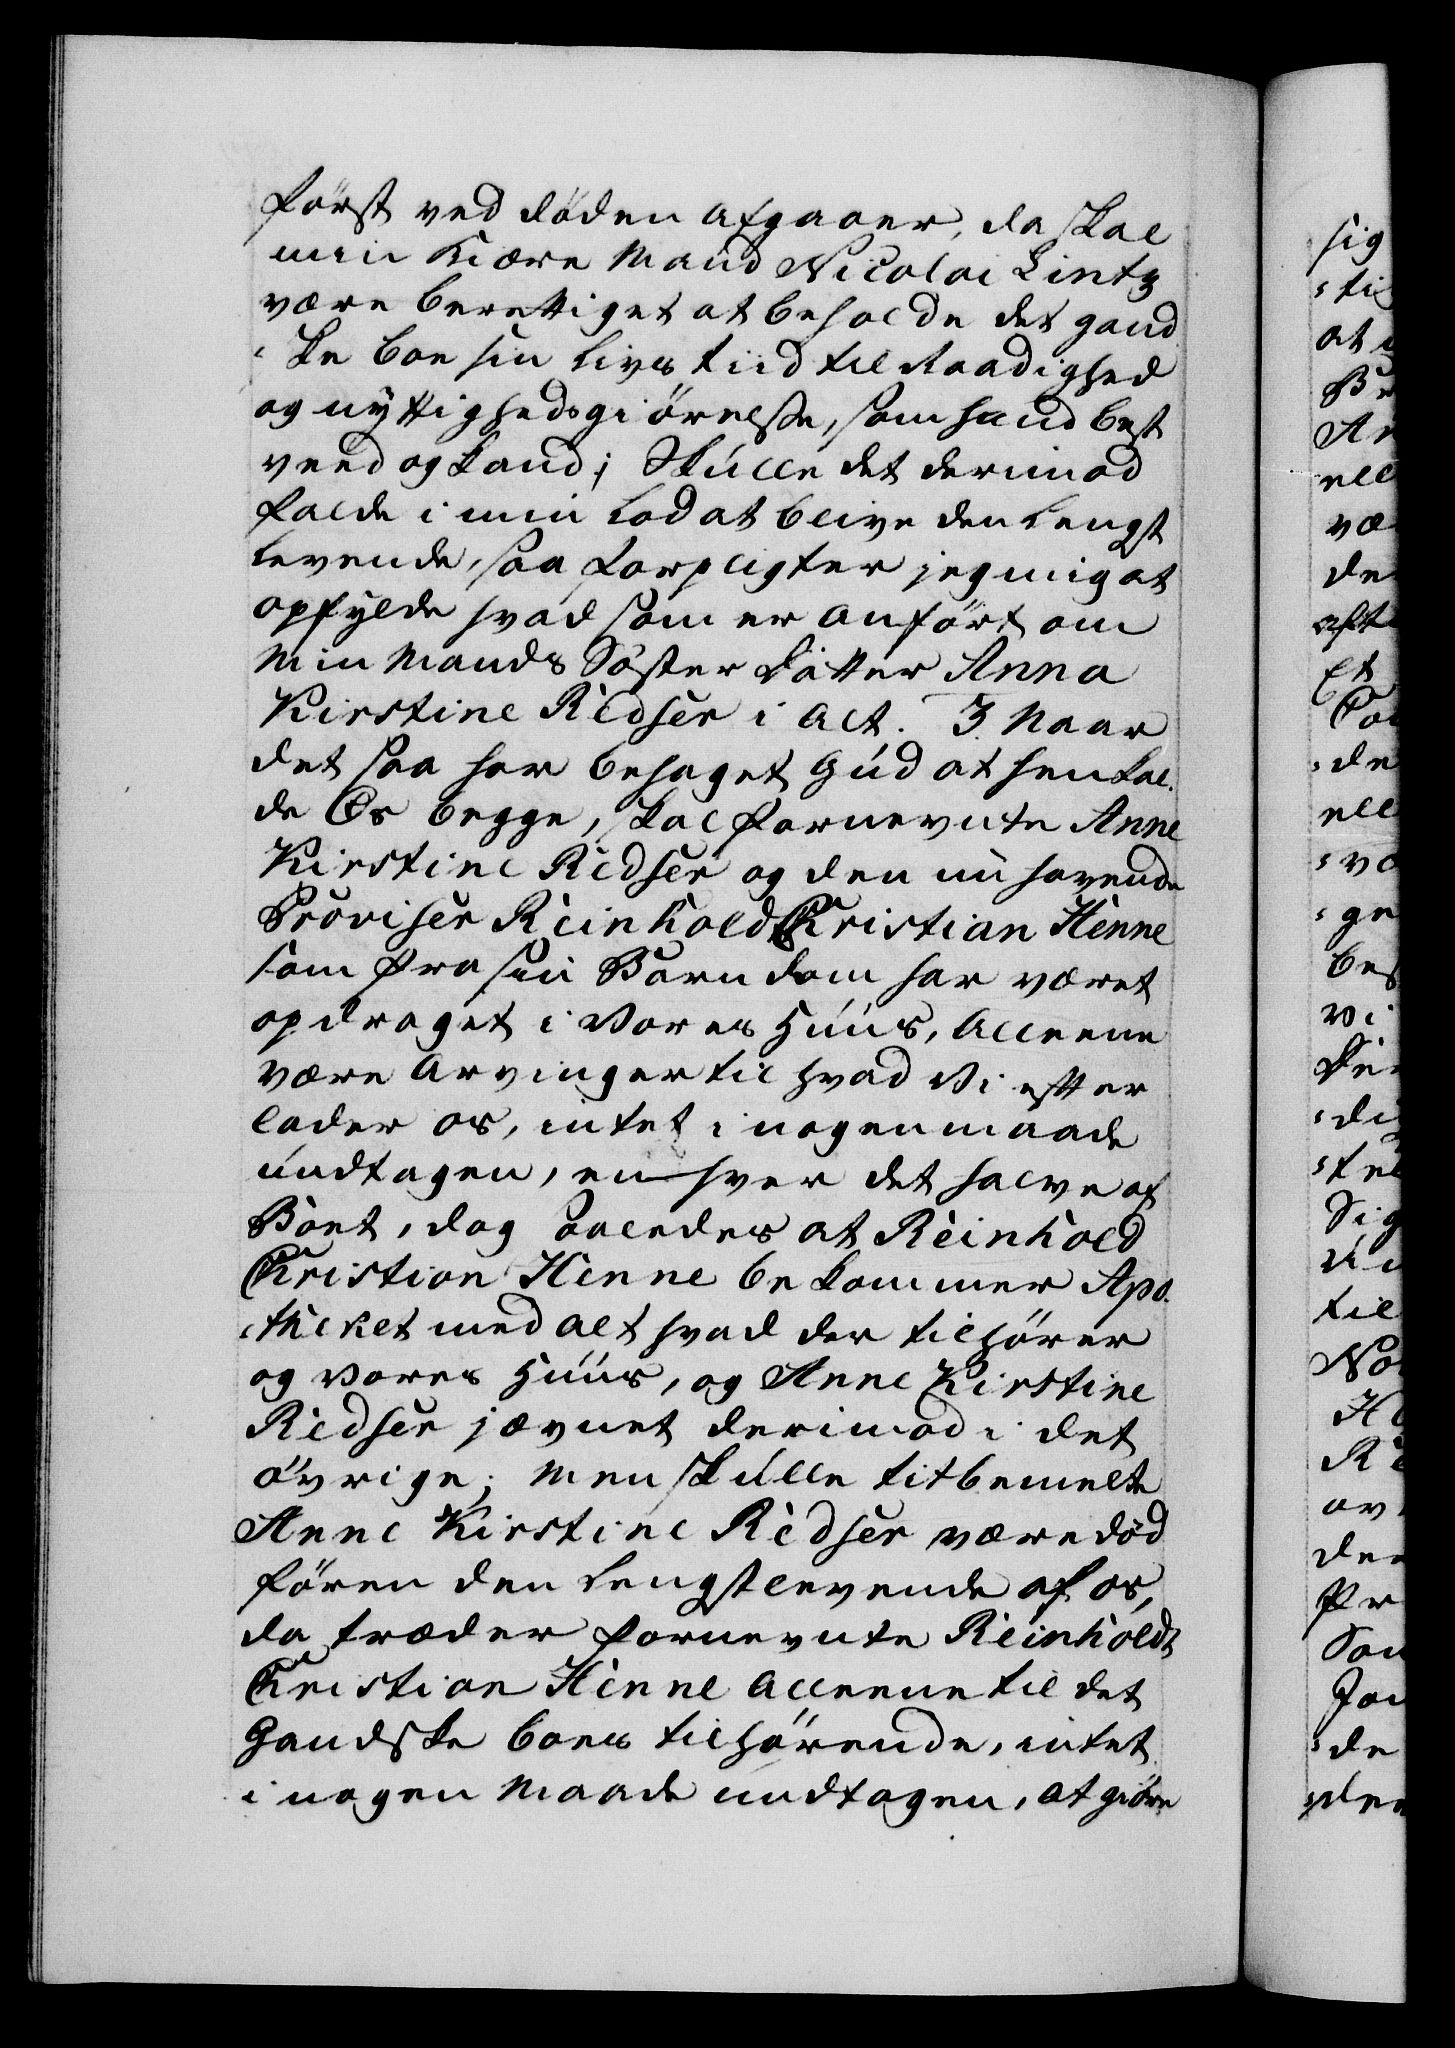 först ved döden afgaaer, da skal
min kiære Mand Nicolai Lintz
være berettiget at beholde det gand
ske boe sin Livs tiid til Raadighed
og nyttighedsgiörelse, som hand best
veed og kand; Skulle det derimod
falde i min Lod at blive den Lengst
levende, saa forpligter jeg mig at
opfylde hvad som er anfört om
Min Mands Söster Datter Anna
Kirstine Riedser i Act. 3 Naar
det saa har behaget Gud at henkal
de Os begge, skal fornevnte Anne
Kirstine Riedser og den nu havende
Proviser Reinhold Christian Henne
som fra sin Barndom har været
opdraget i Vores Huus, alleene
være Arvinger til hvad Vi efter
lader os, intet i nogen maade
undtagen, en hver det halve af
Boet, dog saaledes at Reinhold
Christian Henne bekommer Apo
theket med alt hvad der tilhörer
og Vores Huus, og Anne Kirstine
Riedser jævnet derimod i det
övrige; Men skulle titbemelte
Anne Kirstine Riedser være död
fören den Lengstlevende af os,
da træder fornevnte Reinholdt
Christian Henne alleene til det
Gandske boes tilhörende, intet
i nogen Maade undtagen, at giöre